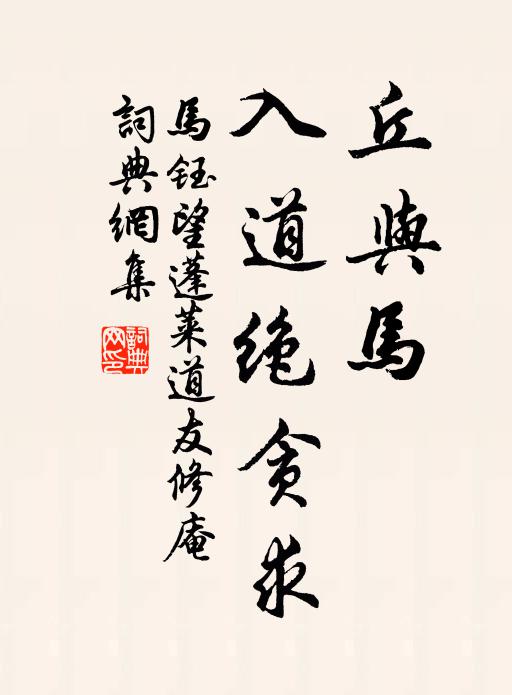 丘與馬
入道绝贪求
馬鈺望蓬莱道友修庵
詞典網集
詞典網印